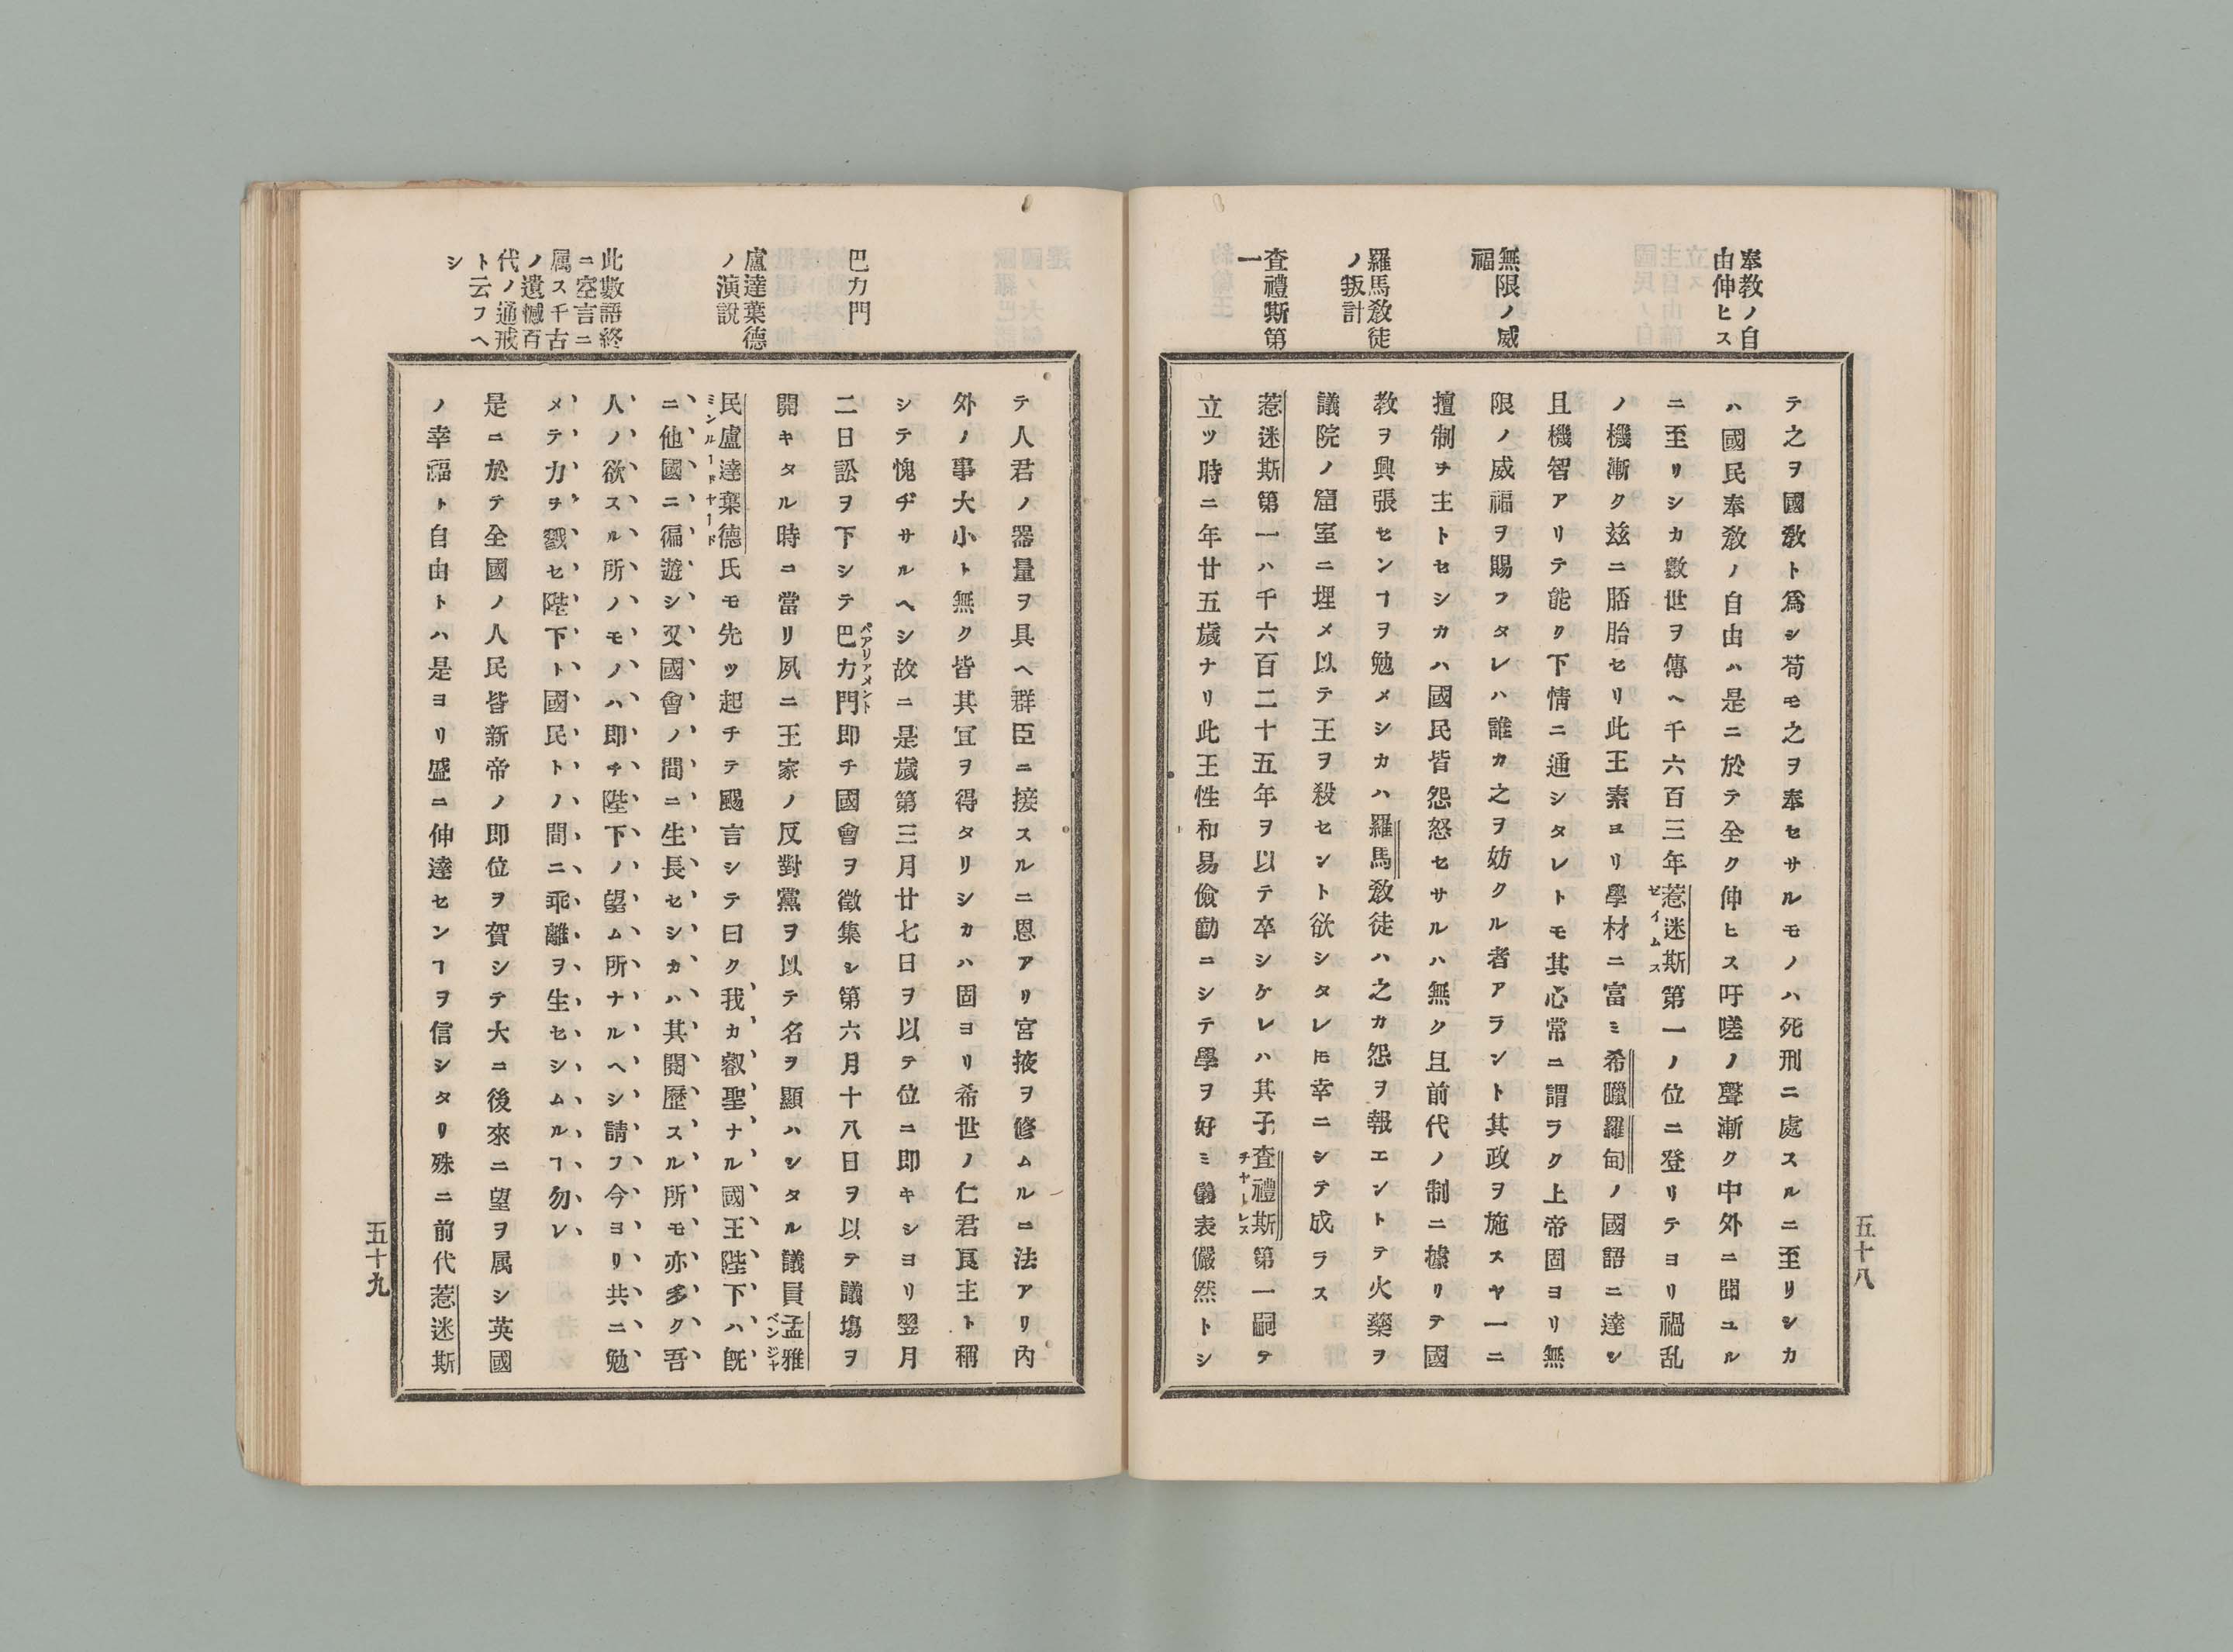 奉教ノ自
由伸ヒス
無限ノ威
福
羅馬敎徒
ノ叛計
査禮斯第
一
テ之ヲ國敎ト爲シ苟モ之ヲ奉セサルモノハ死刑ニ處スルニ至リシカ
ハ國民奉敎ノ自由ハ是ニ於テ全ク伸ヒス吁嗟ノ聲漸ク中外ニ聞ユル
ニ至リシカ數世ヲ傳ヘ千六百三年惹迷斯第一ノ位ニ登リテヨリ禍乱
ゼイムス
ノ機漸ク茲ニ胚胎セリ此王素ヨリ學材ニ富ミ希臘羅甸ノ國語ニ達シ
且機智アリテ能ク下情ニ通シタレトモ其心常ニ謂ラク上帝固ヨリ無
限ノ威福ヲ賜フタレハ誰カ之ヲ妨クル者アラント其政ヲ施スヤ一ニ
擅制ヲ主トセシカハ國民皆怨怒セサルハ無ク且前代ノ制ニ據リテ國
教ヲ興張センヿヲ勉メシカハ羅馬敎徒ハ之カ怨ヲ報エントテ火藥ヲ
議院ノ窟室ニ埋メ以テ王ヲ殺セント欲シタレ𪜈幸ニシテ成ラス
惹迷斯第一ハ千六百二十五年ヲ以テ卒シケレハ其子査禮斯第一嗣テ
チヤーレス
立ツ時ニ年廿五歲ナリ此王性和易儉勤ニシテ學ヲ好ミ儀表儼然トシ
五十八
巴力門
盧達葉德
ノ演說
此數語終
ニ空言ニ
属ス千古
ノ遺憾百
代ノ通戒
ト云フヘ
シ
テ人君ノ器量ヲ具ヘ群臣ニ接スルニ恩アリ宮掖ヲ修ムルニ法アリ內
外ノ事大小ト無ク皆其宜ヲ得タリシカハ固ヨリ希世ノ仁君良主ト稱
シテ愧ヂサルヘシ故ニ是歲第三月廿七日ヲ以テ位ニ即キシヨリ翌月
二日訟ヲ下シテ巴力門即チ國會ヲ徵集シ第六月十八日ヲ以テ議塲ヲ
パアリアメント
開キタル時ニ當リ夙ニ王家ノ反對黨ヲ以テ名ヲ顯ハシタル議員孟雅
ベンジヤ
民盧達葉德氏モ先ツ起チテ颺言シテ曰ク我カ叡聖ナル國王陛下ハ既
ミンルードヤード
ニ他國ニ徧遊シ又國會ノ間ニ生長セシカハ其閱歷スル所モ亦多ク吾
人ノ欲スル所ノモノハ即チ陛下ノ望ム所ナルヘシ請フ今ヨリ共ニ勉
メテ力ヲ戮セ陛下ト國民トノ間ニ乖離ヲ生セシムルヿ勿レ
是ニ於テ全國ノ人民皆新帝ノ即位ヲ賀シテ大ニ後來ニ望ヲ属シ英國
ノ幸福ト自由トハ是ヨリ盛ニ伸達センヿヲ信シタリ殊ニ前代惹迷斯
五十九